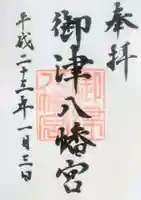 奉拝
御津八幡宮
平成二十三年一月三日